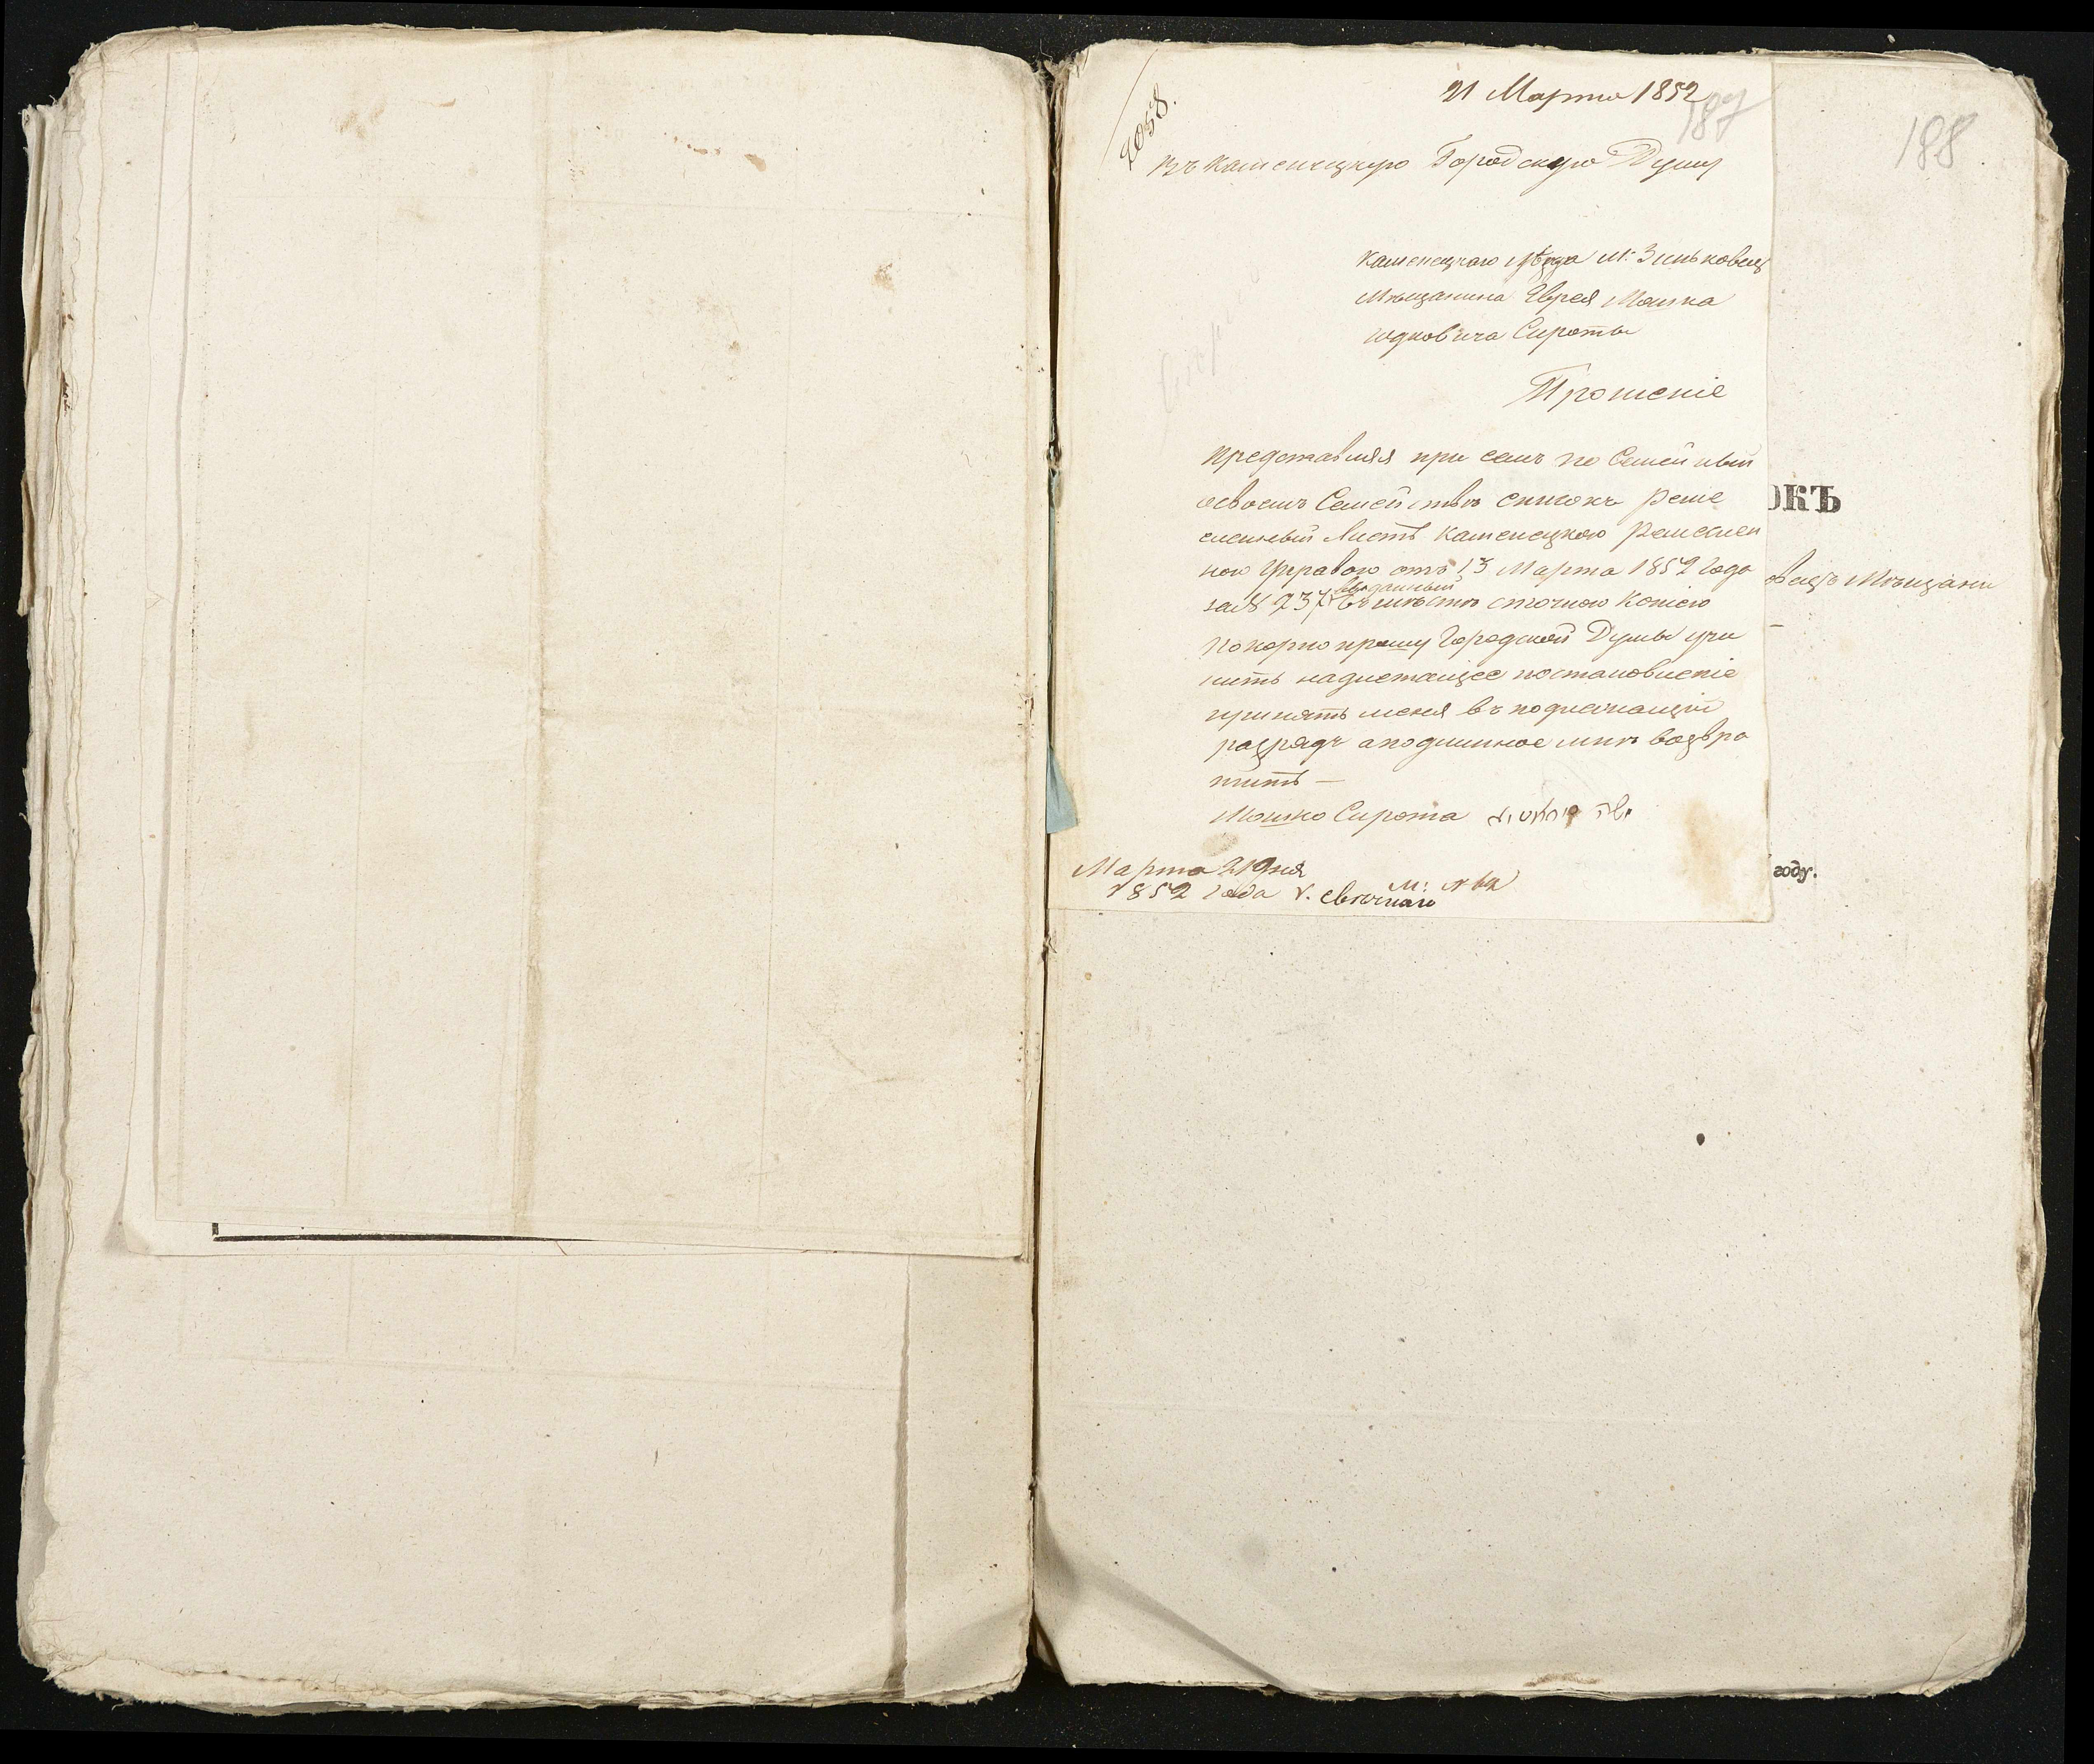 2058.
21 Марта 1852
187
188
Въ Каменецкую Городскую Думу
Каменецкаго уѣзда М: Зиньковецъ
Мѣщанина Еврея Мошка
Юдковича Сироты
Прошеніе
Предоставляя при семъ по Семейный
освоемъ Семействѣ списокъ реме
сленный Листъ Каменецкою Ремеслен
ною Управою отъ 13 Марта 1852 Года
за № 237 выданный
Покорно прошу Городской Думы учи
нить надлежащее постановленіе
принять меня въ подлежащій
разрядъ а подлинное мнѣ возвра
тить —
Мошко Сирота
Марта 21 дня
1852 года
ОКЪ
овецъ Мѣщани
году.